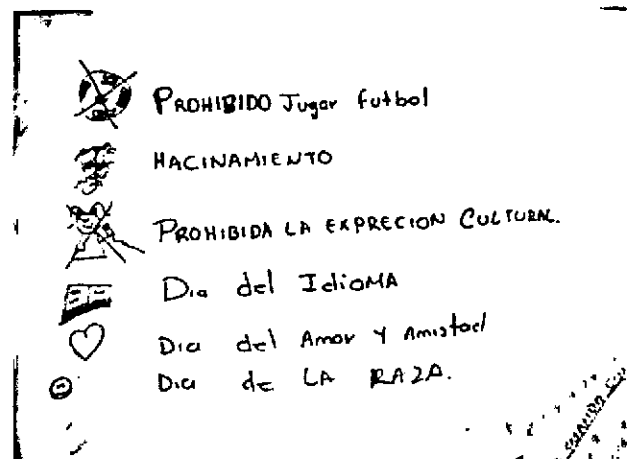 PROHIBIDO Jugar futbol
HACINAMIENTO
PROHIBIDA LA EXPRECION CULTURAL.
Dia del IdioMA
Dia del Amor Y Amistad
Dia de LA RAZA.